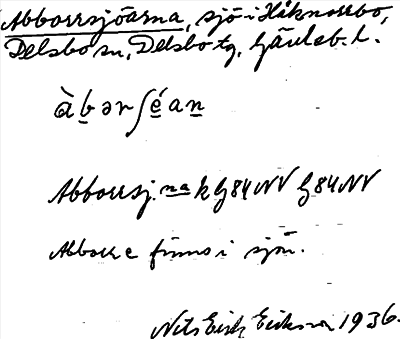 Abborrsjöarna, sjö i Håknorrbo,
Delsbo sn, Delsbo tg, Gävleb. l.
àbərʃéan
Abborrsj. na k G84NV G84NV
Abborre finns i sjön.
Nils Erik Eriksson 1936.